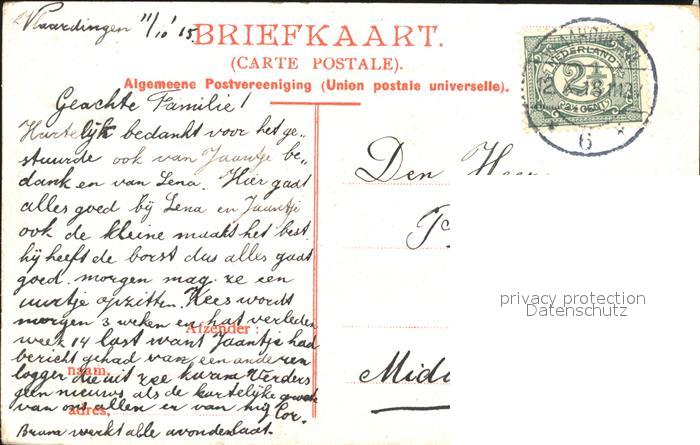 Vlaardingen 11/10 '15
BRIEFKAART.
(CARTE POSTALE).
Algemeene Postvereeniging (Union postale universelle).
NEDERLAND
2½
2½ CENT
6
Geachte Familie!
Hartelijk bedankt voor het ge„
stuurde ook van Jaantje be„
dank en van Lena. Hier gaat
alles goed bij Lena en Jaantje
ook de kleine maakt het best
hij heeft de borst dus alles gaat
goed. morgen mag ze een
uurtje opzitten. Kees wordt
morgen 3 weken en hat verleden
week 14 last want Jaantje had
Afzender:
bericht gehad van een anderen
logger die uit zee kwam Verders
naam,
geen nieuws als de hartelijke
van ons allen en van Cor.
adres,
Bruna werkt alle avonden laat.
Den Heer
P
Midd
privacy protection
Datenschutz